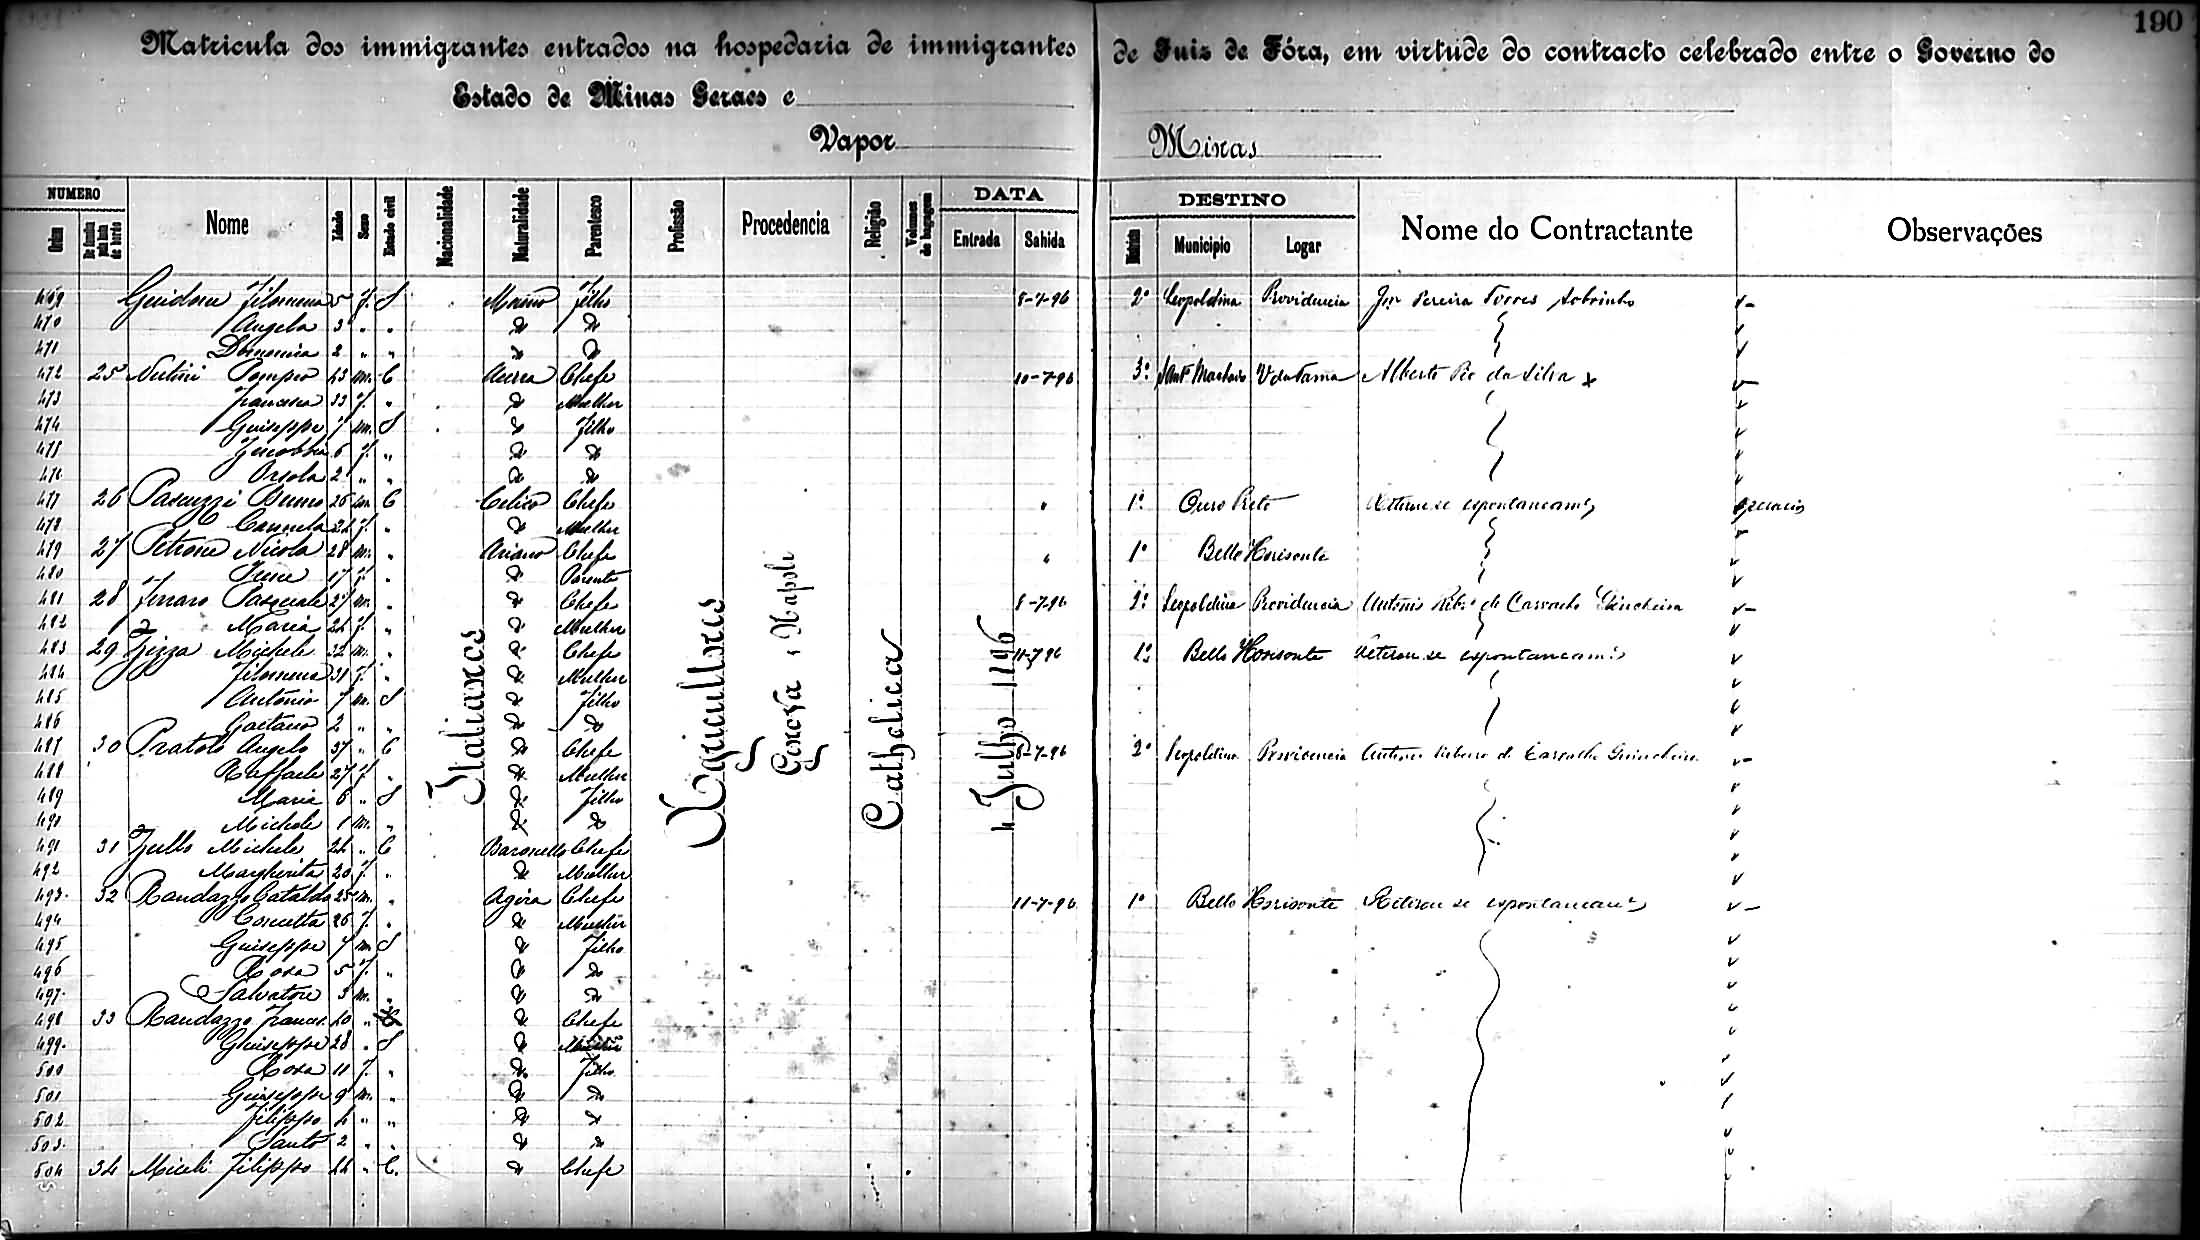 190
Matricula dos immigrantes entrados na hospedaria de immigrantes de Juiz de Fóra, em virtude do contracto celebrado entre o Governo do
Estado de Minas Geraes e
Vapor Minas
NUMERO DATA DESTINO
Ordem Nome Idade Sexo Estado civil Nacionalidade Naturalidade Parentesco Profissão Procedencia Religião Volumes de bagagem Entrada Sahida Municipio Logar Nome do Contractante Observações
Italianos
Agricultores
Genova e Napoli
Catholica
4 Julho 1896
469 Guidone Filomena 5 f. S Filho 8-7-96 2º Leopoldina Providencia Jm Pereira Torres Sobrinho
470 Angela 3 " "
471 2 " "
472 25 Pompeo 43 m. C Chefe 10-7-96 3º Alberto Pio da Silva
473 Francesca 33 f. " Mulher
474 Guiseppe 7 m. S Filho
475 6 f. "
476 Orsola 2 " "
477 26 Pascuzzi Bruno 26 m. C Celico Chefe " 1º Ouro Preto Retirou se espontaneamte
478 Carmela 24 f. " Mulher
479 27 Petrone Nicola 28 m. " Ariano Chefe " 1º Bello Horisonte
480 Irene 17 f. " Parente
481 28 Ferraro Pasquale 27 m. " Chefe 8-7-96 2º Leopoldina Providencia Antonio Ribro de Carvalho
482 Maria 24 f. " Mulher
483 29 Zizza Michele 32 m. " Chefe 11-7-96 1º Bello Horisonte Retirou se espontaneamte
484 Filomena 31 f. " Mulher
485 Antonio 7 m. S Filho
486 Gaetano 2 " "
487 30 Pratolo Angelo 37 " C Chefe 8-7-96 2º Leopoldina Providencia Antonio Ribeiro de Carvalho
488 Raffaele 27 f. " Mulher
489 Maria 6 " S Filho
490 Michele 1 m. "
491 31 Zullo Michele 24 " C Baronello Chefe
492 Margherita 20 f. " Mulher
493 32 Randazzo Cataldo 25 m. " Agira Chefe 11-7-96 1º Bello Horisonte Retirou se espontaneamte
494 Concetta 26 f. " Mulher
495 Guiseppe 7 m. S Filho
496 Rosa 5 f. "
497 Salvatore 3 m. "
498 33 Randazzo Franc. 40 " Chefe
499 Guiseppe 28 " S
500 Rosa 11 f. " Filho
501 Guiseppe 9 m. "
502 Filippo 4 " "
503 Santo 2 " "
504 34 Miceli Filippo 44 " C. Chefe